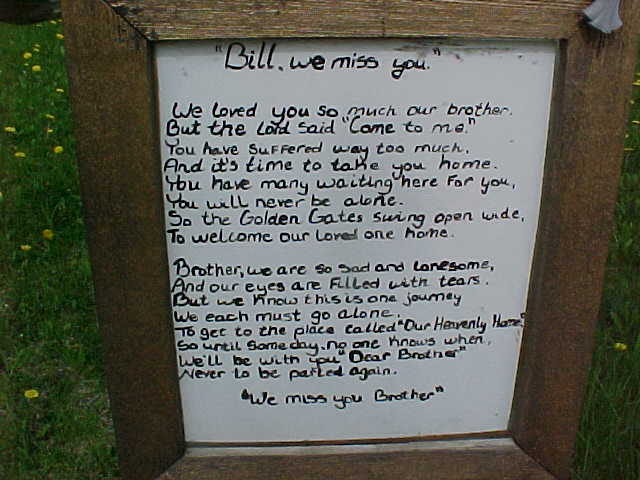 "Bill, we miss you."
We loved you so much our brother.
But the Lord said "Come to me."
You have suffered way too much,
And it's time to take you home.
You have many waiting here for you,
You will never be alone.
So the Golden Gates swing open wide,
To welcome our loved one home.
Brother, we are so sad and lonesome,
And our eyes are filled with tears.
But we know this is one journey
We each must go alone.
To get to the place called "Our Heavenly Home."
So until someday, no one knows when,
We'll be with you "Dear Brother"
Never to be parted again.
"We miss you Brother"